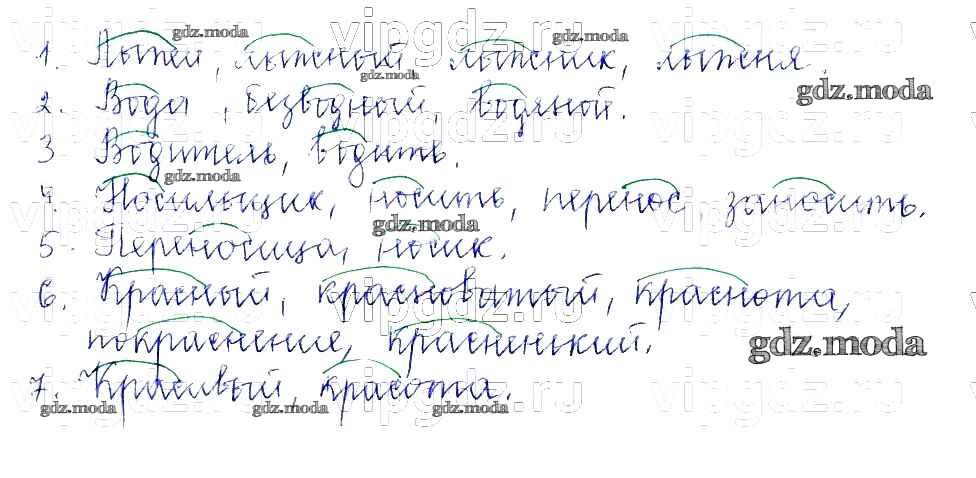 1. Лыжей, лыжный лыжник, лыжня.
2. Вода, безводный, водяной.
3 Водитель, водить.
4. Носильщик, носить, перенос, заносить.
5. Переносица, носик.
6. Красный, красноватый, краснота,
покраснение, красненький.
7. Красивый, красота.
gdz.moda
vipgdz.ru